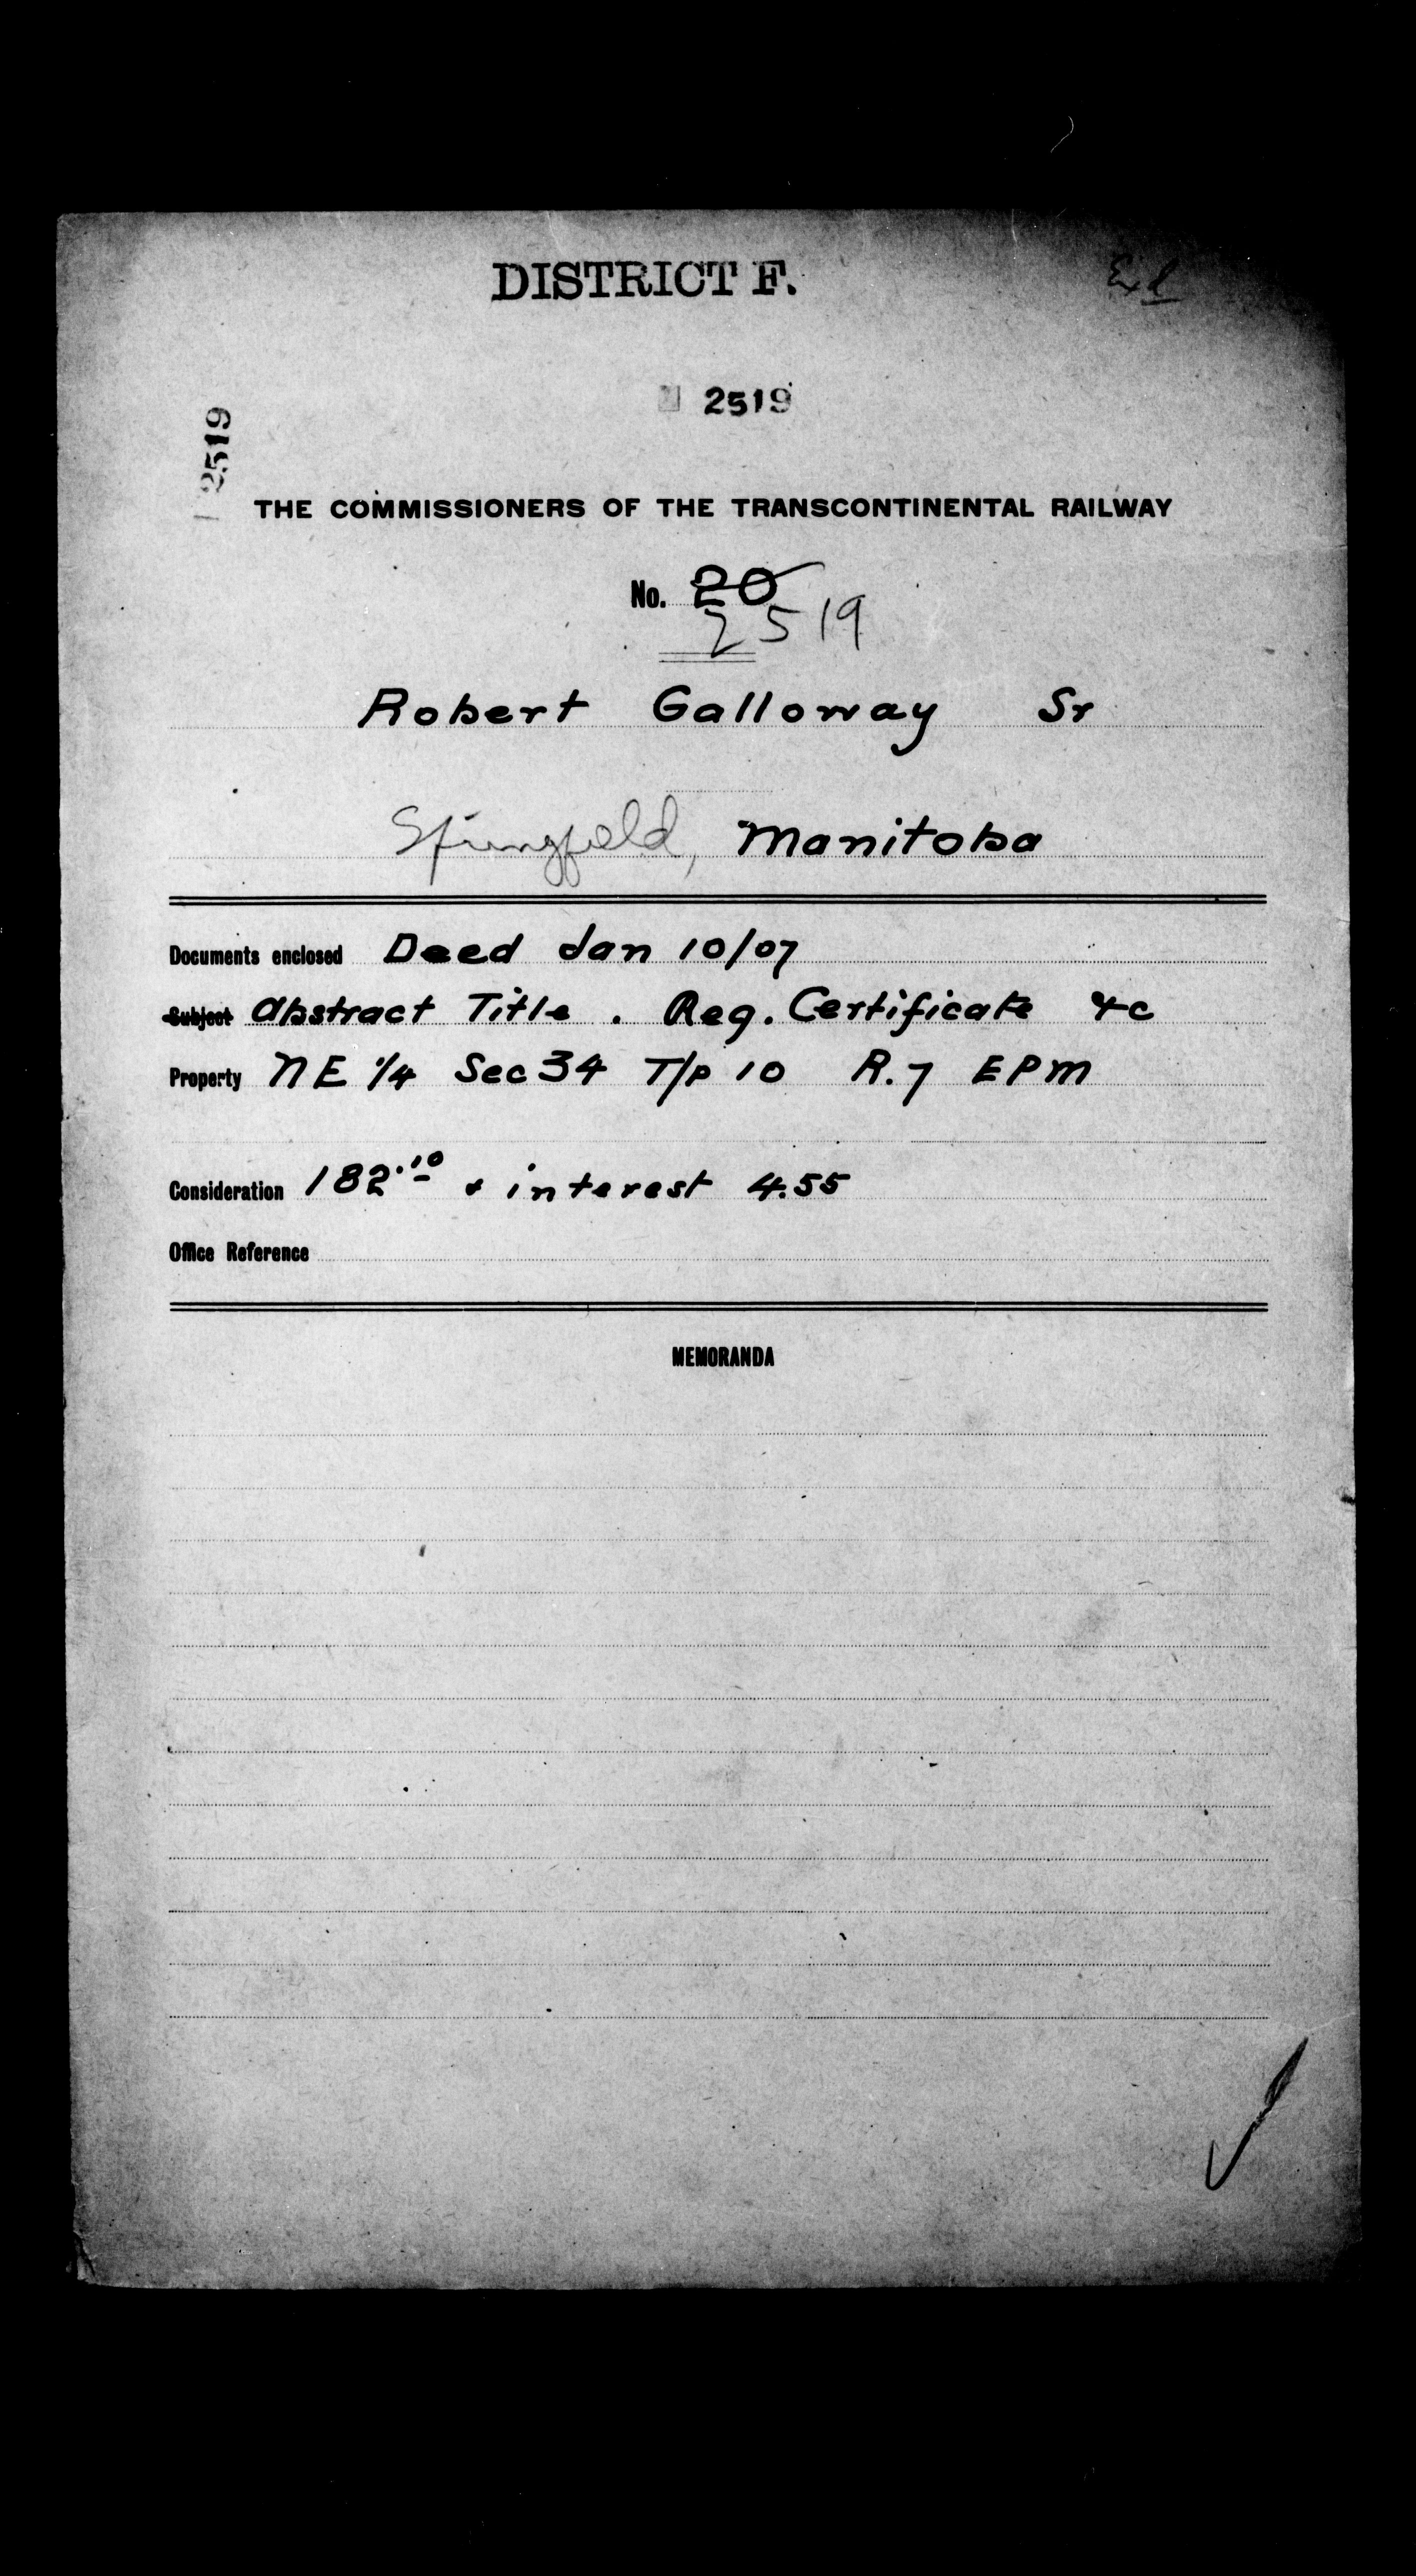 DISTRICT F.
Exd
2519
2519
THE COMMISSIONERS OF THE TRANSCONTINENTAL RAILWAY
No. 20
2519
Robert Galloway Sr
Springfield, Manitoba
Documents enclosed Deed Jan 10/07
Subject Abstract Title . Reg. Certificate &c
Property NE 1/4 Sec 34 T/p 10 R. 7 EPM
Consideration 182.10 & interest 4.55
Office Reference
MEMORANDA